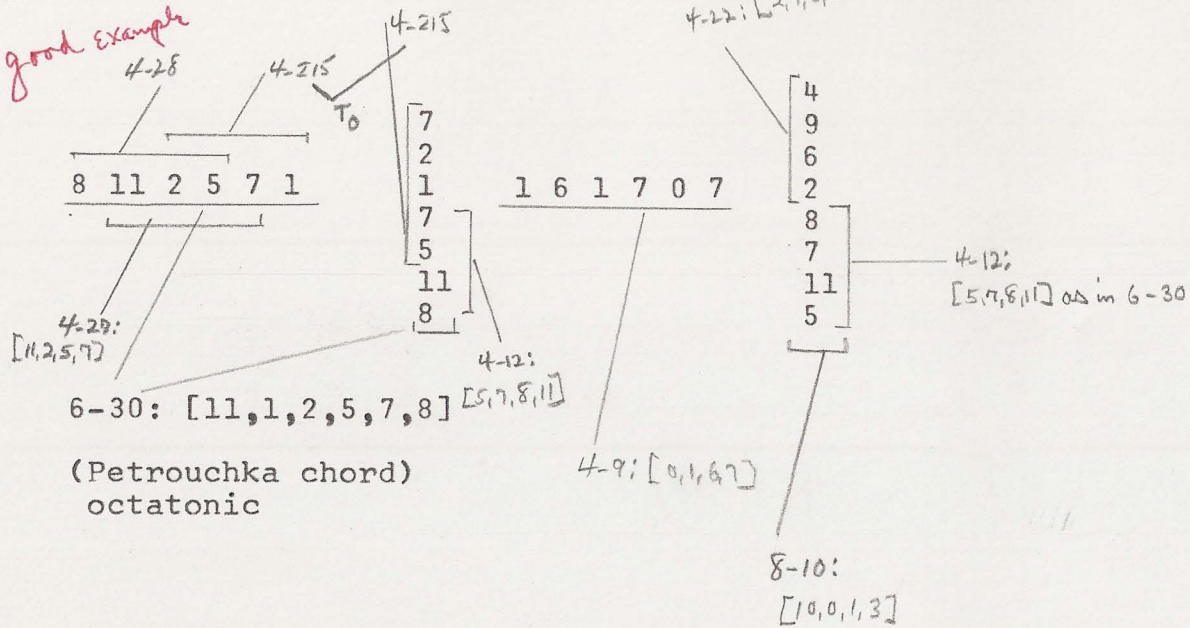 good example
4-28
4-Z15
4-Z15
4-22:
T0
8 11 2 5 7 1
7
2
1
7
5
11
8
1 6 1 7 0 7
4
9
6
2
8
7
11
5
4-28:
[11,2,5,7]
4-12:
[5,7,8,11]
4-12:
[5,7,8,11] as in 6-30
6-30: [11,1,2,5,7,8]
(Petrouchka chord)
octatonic
4-9: [0,1,6,7]
8-10:
[10,0,1,3]